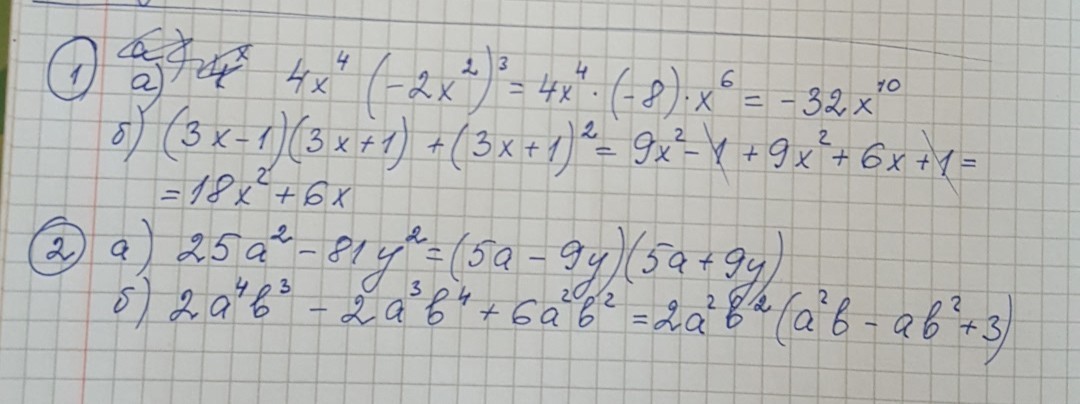 ① а) 4x⁴ (-2x²)³ = 4x⁴ · (-8) · x⁶ = -32x¹⁰
б) (3x-1)(3x+1) + (3x+1)² = 9x² - 1 + 9x² + 6x + 1 =
= 18x² + 6x
② а) 25a² - 81y² = (5a - 9y)(5a + 9y)
б) 2a⁴b³ - 2a³b⁴ + 6a²b² = 2a²b² (a²b - ab² + 3)